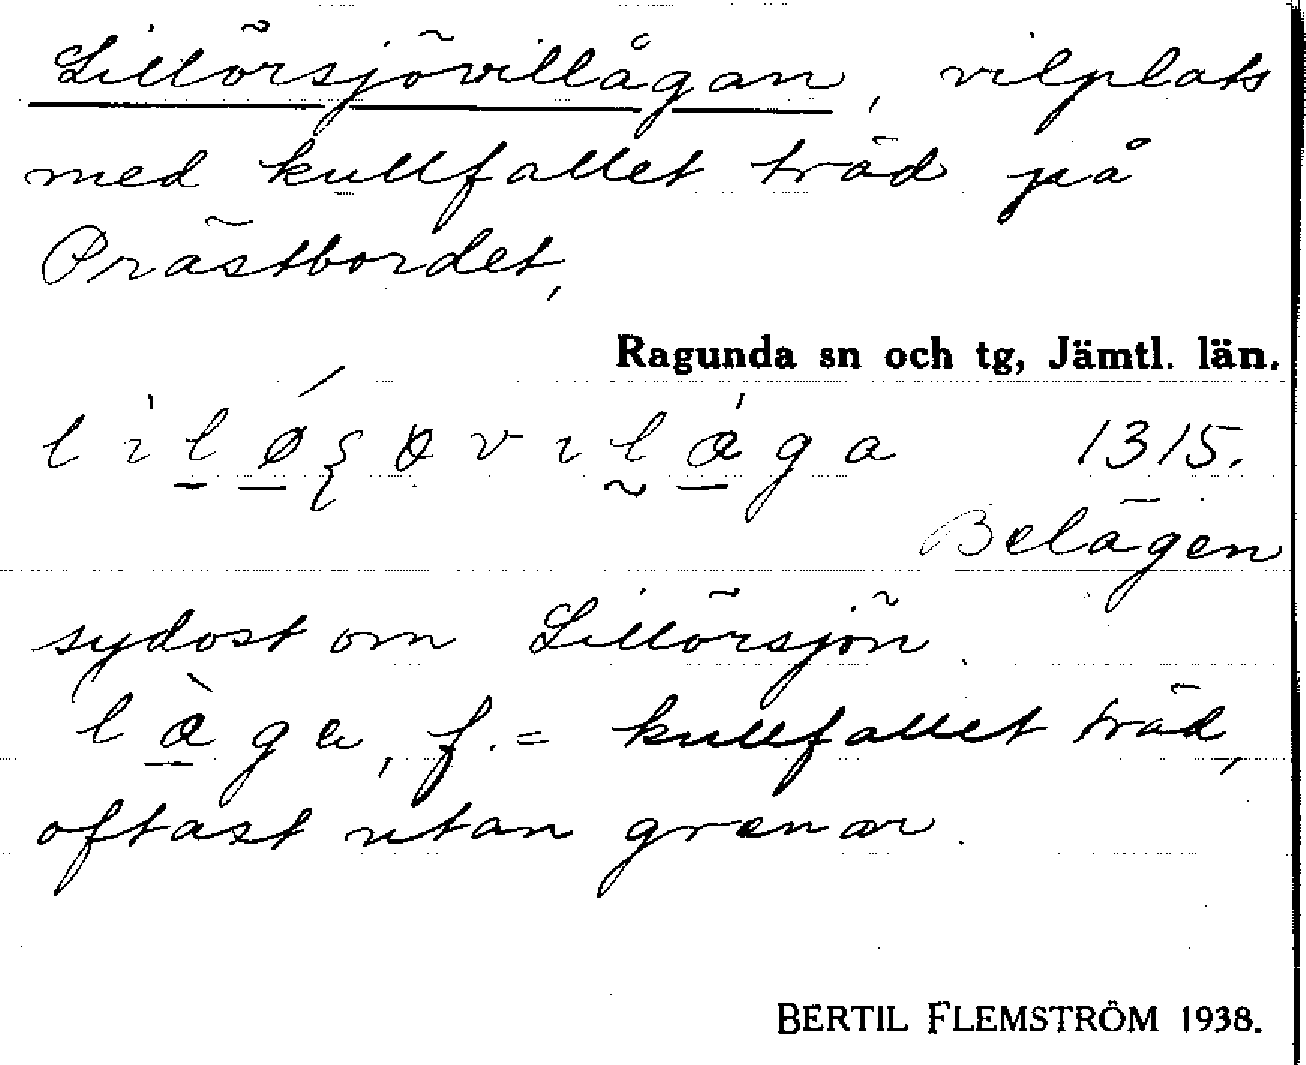 Lillörsjövillågan, vilplats
med kullfallet träd på
Prästbordet,
Ragunda sn och tg, Jämtl. län.
1315.
Belägen
sydost om Lillörsjön.
låga, f. = kullfallet träd,
oftast utan grenar.
BERTIL FLEMSTRÖM 1938.